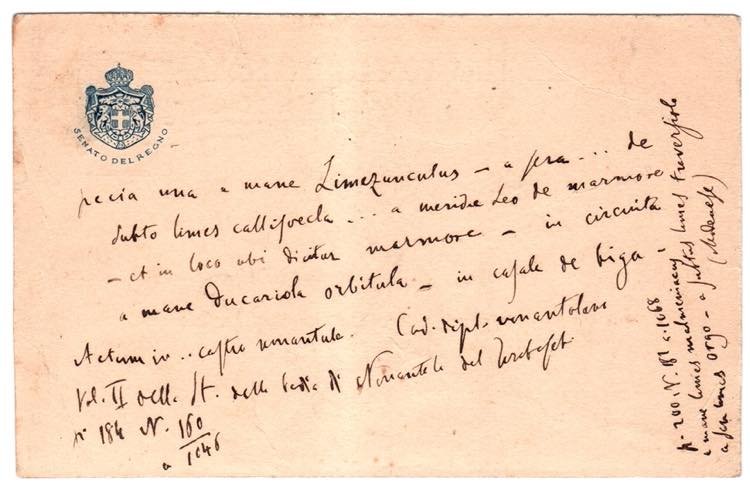 SENATO DEL REGNO
pecia una a mane Limezunculus – a sera ... de
subto limes callisvecla ... a meridie Leo de marmore
– et in loco ubi dicitur marmore – in circuitu
a mane Ducariola orbitula – in casale de biga –
Actum in .. castro nonantule. Cod. dipl. nonantolano
Vol. II della St. della Badia di Nonantola del Tiraboschi
pº 184 N. 160
a 1046
p. 200. N. 182 a. 1068
a mane limes traversiolo
a sera limes orgo – a (Modenese)